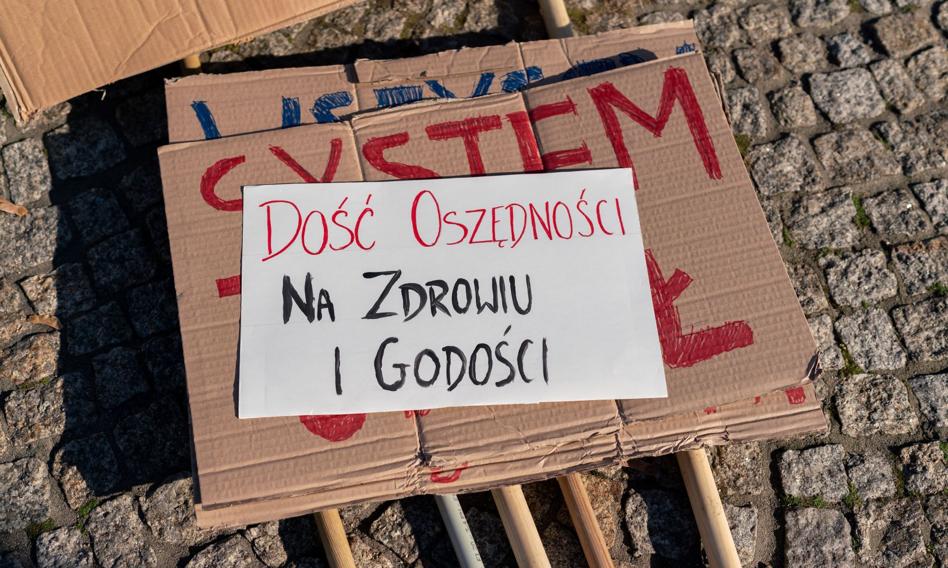 SYSTEM
DOŚĆ OSZĘDNOŚCI
NA ZDROWIU
I GODOŚCI